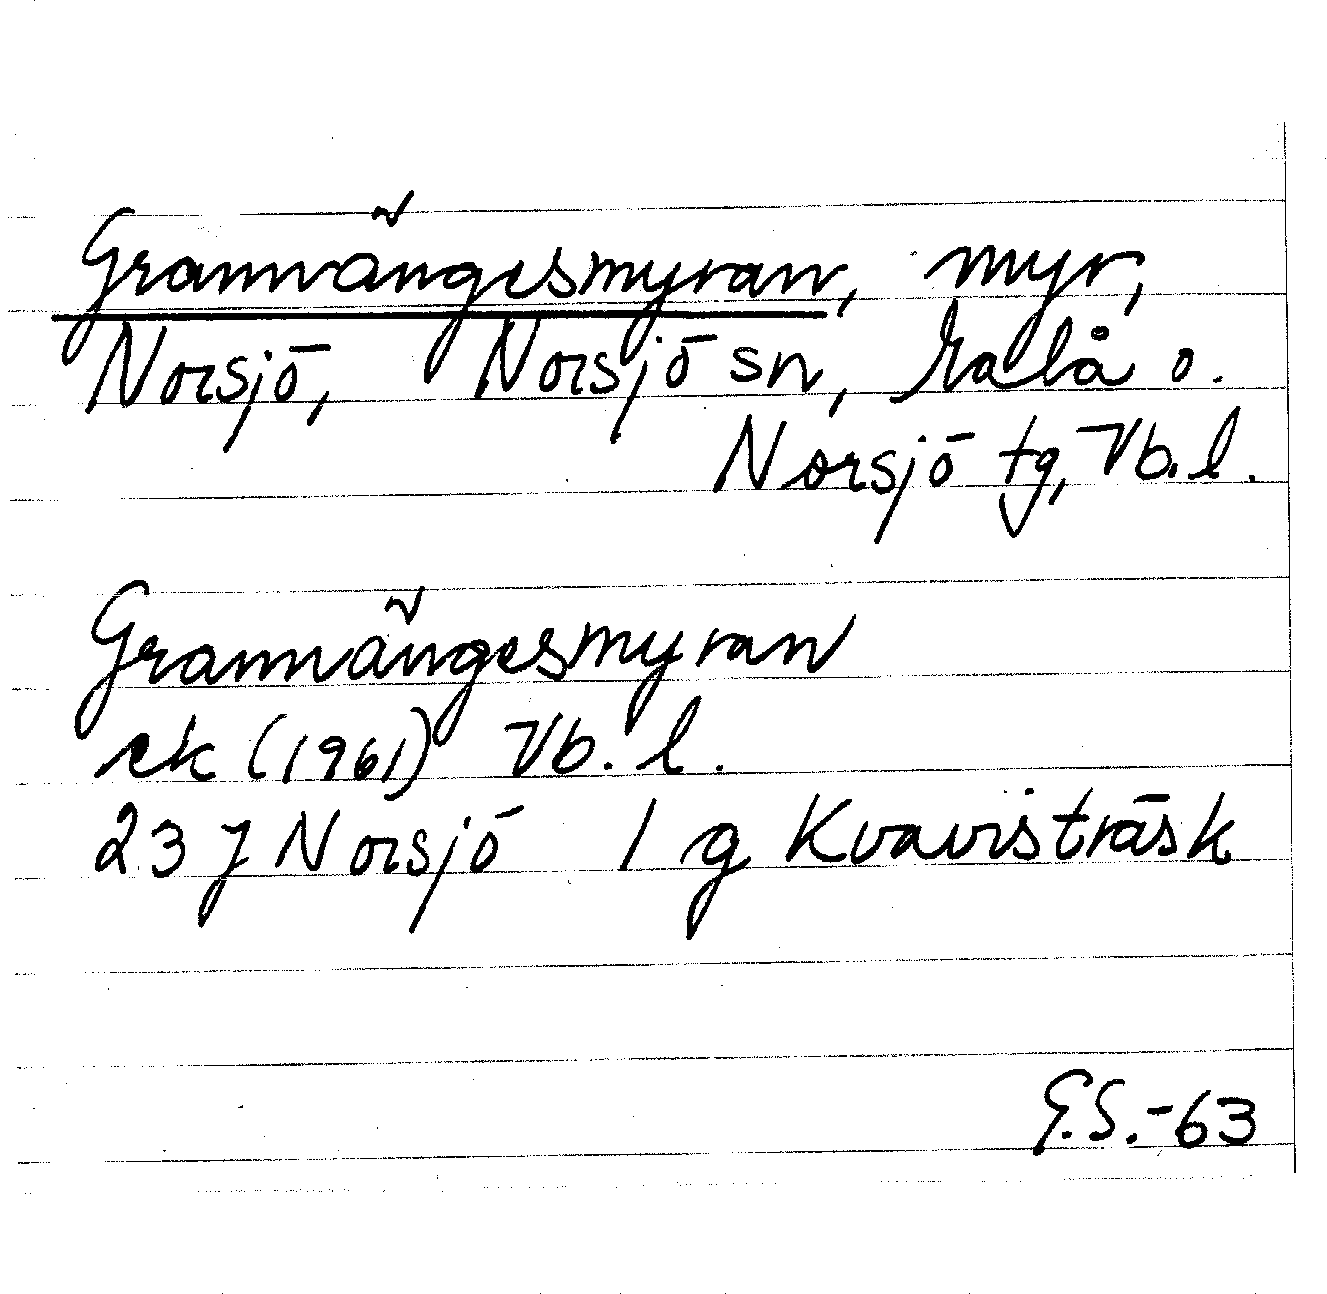 Grannängesmyran, myr,
Norsjö, Norsjö sn, Malå o.
Norsjö tg, Vb. l.
Grannängesmyran
ek (1961) Vb. l.
23 J Norsjö 1 g Kvavisträsk
G.S.-63